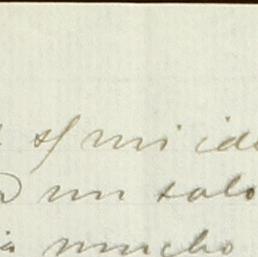 s/ mi ide
un solo
mucho